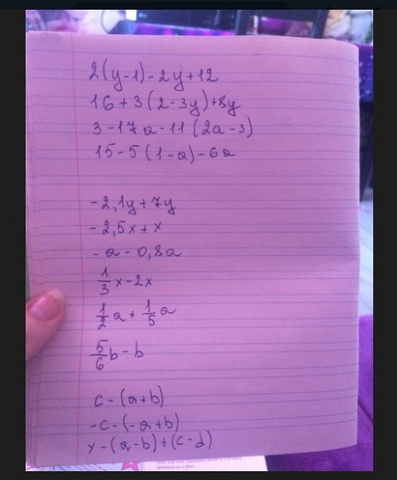 2(y-1)-2y+12
16+3(2-3y)+8y
3-17a-11(2a-3)
15-5(1-a)-6a
-2,1y+7y
-2,5x+x
-a-0,8a
1/3x-2x
1/2a+1/5a
5/6b-b
c-(a+b)
-c-(-a+b)
x-(a-b)+(c-d)